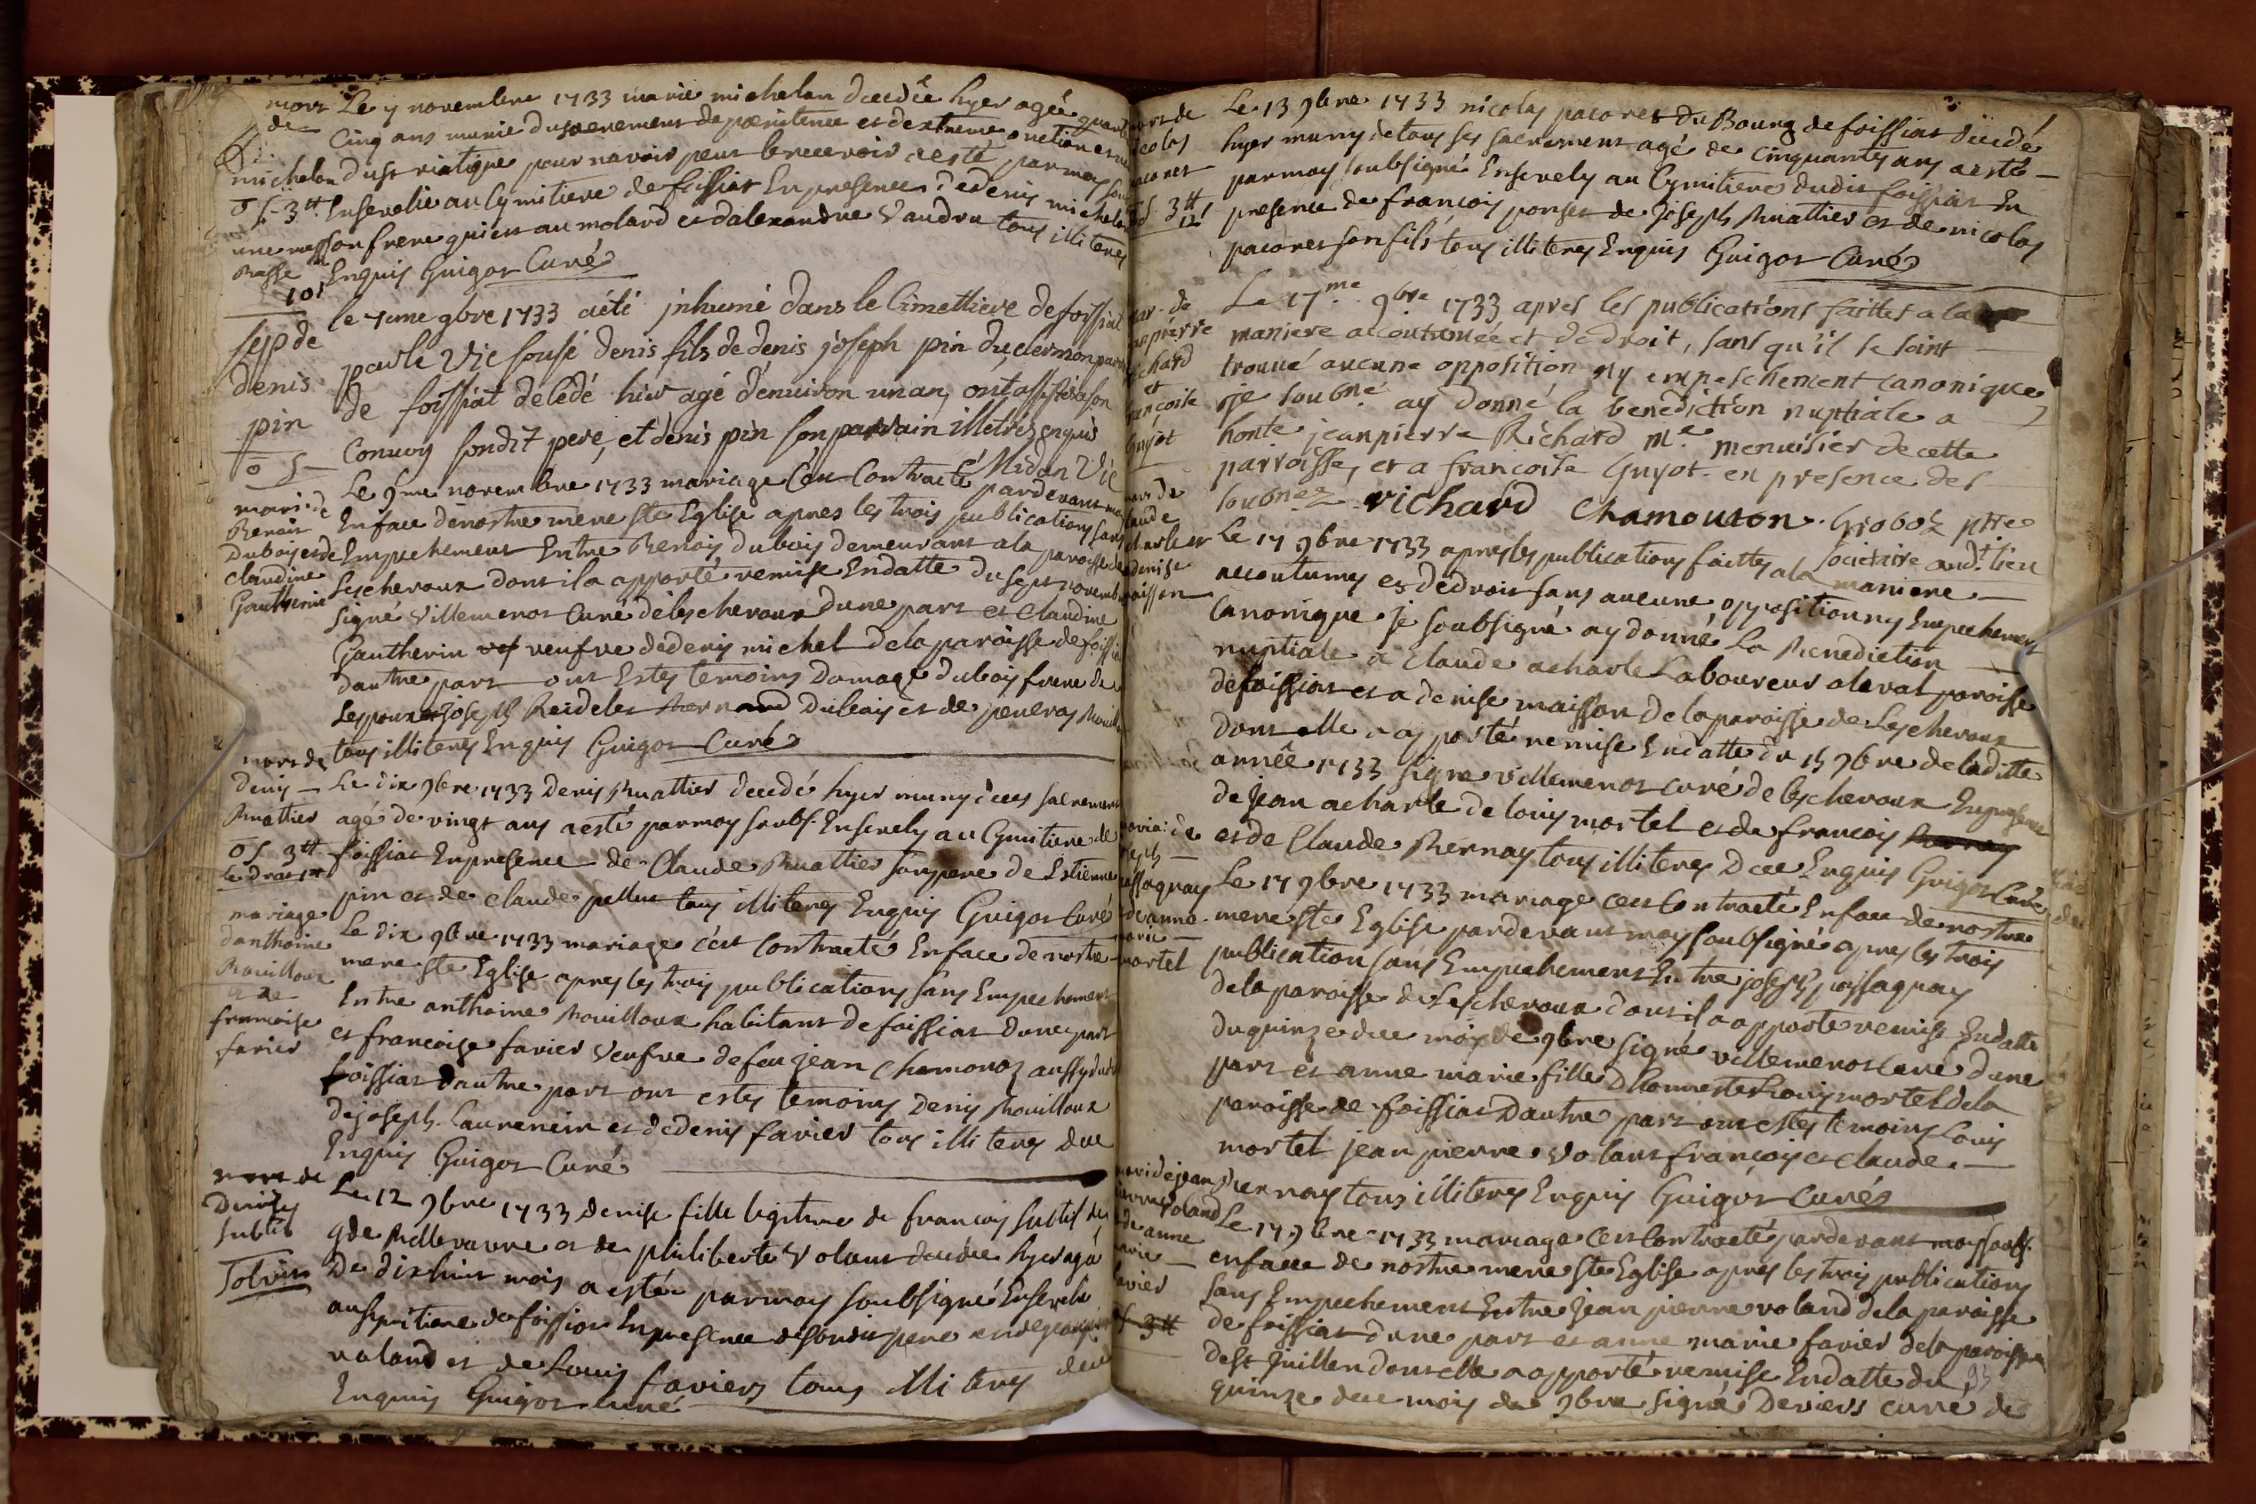 mort Le 7 novembre 1733 marie michelon decedée hyer agée quarente
de cinq ans munie du sacrement de poenitence et dextreme onction et non
michelon dust viatique pour navoir peut le recevoir a esté par moy soub
o s. 3tt Ensevelie au Cymitiere de foissiat En presence de denis michelon
une messe son frere quiest au molard et dalexandre Vaudru tous illiteres
Enquis Guigot Curé
10s
le 7ime 9bre 1733 aété jnhumé dans le Cimettiere de foissiat
sep de
par le Vic sousé denis fils de denis joseph pin du clermon paroisse
denis
de foissiat delédé hier agé d'enuiron un an, ont assisté a son
pin
Convoy sondit pere, et denis pin son parrain illetrés enquis
o s Midan Vic
Le 9me novembre 1733 mariage Cest Contracté pardevant moy
mari: de
Benoit Enface denostre mere ste Eglise apres les trois publications sans
Duboy et de Empechement Entre Benoit duboy demeurant ala paroisse de
claudine Lescheroux dont il a apporté remise Endatte du sept novembre
Gautherin signé Villemenot Curé de lescheroux dune part et claudine
Gautherin veufve de denis michel dela paroisse de foissiat
dautre part ont Estés temoins Damage duboy frere de
Lespoux Joseph Reidelet Duboy et de
tous illiteres Enquis Guigot Curé
mort de
Denis Le dix 9bre 1733 Denis Muattier decedé hyer muny d ces sacremens
Muattier agé de vingt ans a esté par moy soubs. Ensevely au Cymitiere de
o s 3tt foissiat En presence de Claude Muattier son pere de Estienne
pin et de claude pellus tous illiteres Enquis Guigot Curé
mariage Le dix 9bre 1733 mariage c'est Contracté Enface de nostre
danthoine
Mouilloux mere ste Eglise apres les trois publications sans Empechement
a de Entre anthoine Mouilloux habitant de foissiat dune part
francoise et francoise favier veufve de feu jean Chamonoz aussy dudit
favier foissiat dautre part ont estés temoins Denis Mouilloux
de joseph Laurencin et de denis favier tous illiteres due
Enquis Guigot Curé
mort de
Denise Le 12 9bre 1733 Denise fille legitime de francoy subtil de
subtil gde Mallevavre et de philiberte Volant decedée hyer agé
De dixhuit mois a estée par moy soubsigné Ensevelie
au Cymitiere de foissiat En presence de sondit pere et de jean pierre
voland et de Louis faviers tous illiteres due
Enquis Guigot curé
Le 13 9bre 1733 nicolas pacoret du Bourg de foissiat decedé
hyer muny de tous ses sacrement agé de cinquantes ans a esté
par moy soubsigné Ensevely au Cymitiere dudit foissiat En
3tt presence de francois ponset de Joseph Muattier et de nicolas
12s pacoret son fils tous illiteres Enquis Guigot Curé
Le 17me 9bre 1733 apres les publications faittes a la
mar. de
jeanpierre maniere accoutumée et de droit, sans qu'il se soint
Richard trouué aucune opposition ny empeschement canonique
et je soubné ay donné la benediction nuptiale a
francoise
Guyot honte jeanpierre Richard me menuisier de cette
parroisse, et a francoise Guyot en presence des
soubnez richard Chamouton. Groboz ptre
societaire audt lieu
mar. de
claude Le 17 9bre 1733 apres les publications faittes a la maniere
acharle et accoutumes et de droit sans aucune opposition ny Empechement
denise
maisson canonique Je soubsigné ay donné La Benediction
nuptiale a Claude acharle Laboureur alaval paroisse
de foissiat et a denise maisson de la paroisse de Lescheroux
dont elle a apporté remise Endatte du 15 9bre de laditte
année 1733 signé villemenot curé de lescheroux En presence
de jean acharle de louis mortel et de francois
et de Claude Bernay tous illiteres D ce Enquis Guigot Curé
maria: de
joseph
poissaquay Le 17 9bre 1733 mariage cest Contracté Enface de nostre
et danne mere ste Eglise pardevant moy soubsigné apres les trois
marie
mortel publication sans Empechement Entre joseph poissaquay
dela paroisse de Lescheroux dont il a apporté remise Endatte
du quinze due mois de 9bre signé villemenot Curé dune
part et anne marie fille Dhonneste Louis mortel dela
paroisse de foissiat Dautre part ont estés temoins Louis
mortel jean pierre volant francois et claude
Bernay tous illiteres Enquis Guigot Curé
mari de jean
pierre Voland Le 17 9bre 1733 mariage cest Contracté pardevant moy soubs.
et de anne
marie enface de nostre mere ste Eglise apres les trois publications
favier sans Empechement Entre jean pierre voland dela paroisse
3tt de foissiat dune part et anne marie favier dela paroisse
de st Juillen dont elle a apporté remise Endatte du
quinze due mois de 9bre signé Deviers curé de